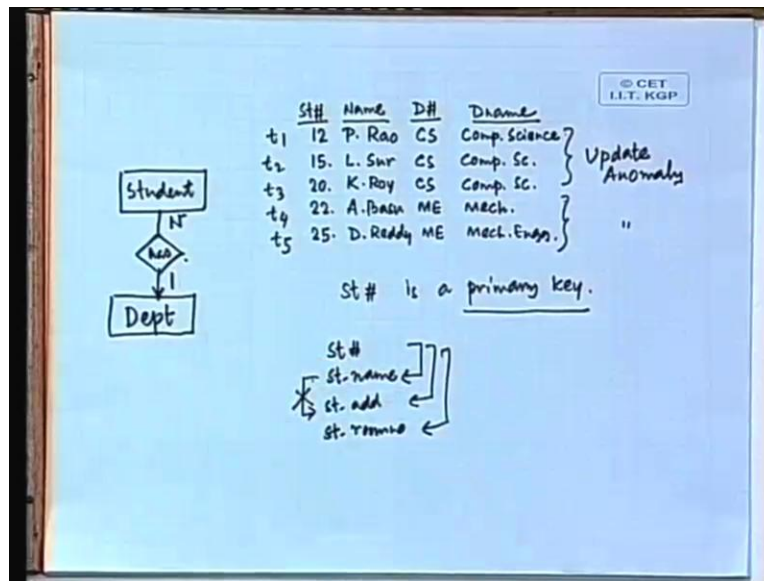 © CET
I.I.T. KGP
St# Name D# Dname
t1 12 P. Rao CS Comp. Science
t2 15. L. Sur CS Comp. Sc.
t3 20. K. Roy CS Comp. Sc.
t4 22. A. Basu ME Mech.
t5 25. D. Reddy ME Mech. Engg.
Update
Anomaly
"
Student
N
has
1
Dept
St# is a primary key.
St#
St. name
St. add
St. roomno